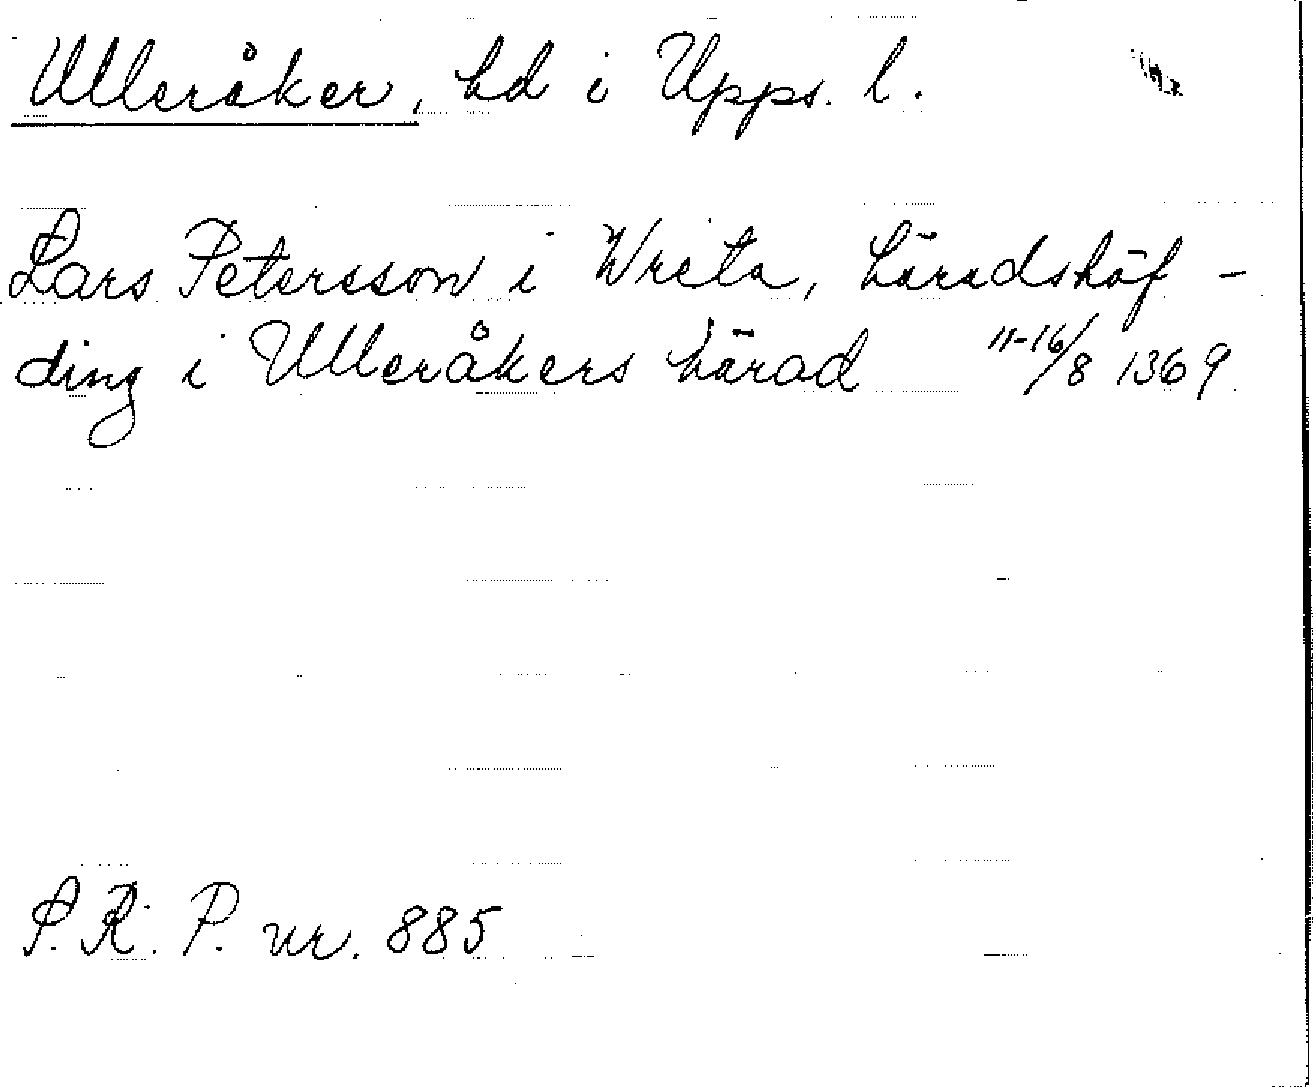 Ulleråker, hd i Upps. l.
Lars Petersson i Wreta, häradshöf-
ding i Ulleråkers härad 11-16/8 1369
S.R.P. nr. 885